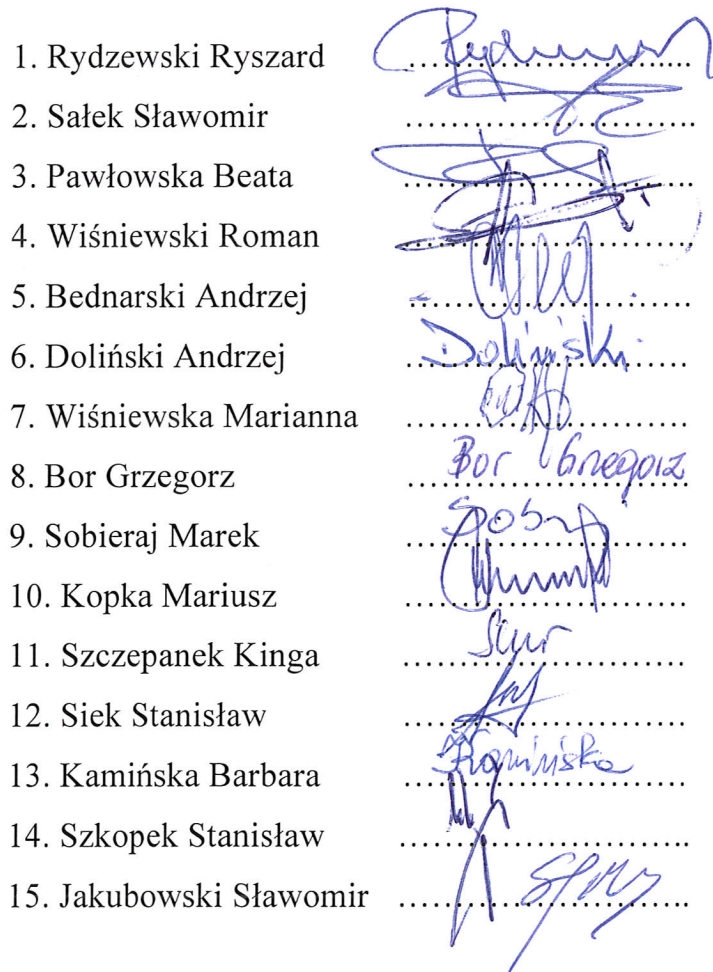 1. Rydzewski Ryszard ........................
2. Sałek Sławomir ........................
3. Pawłowska Beata ........................
4. Wiśniewski Roman ........................
5. Bednarski Andrzej ........................
6. Doliński Andrzej Doliński
7. Wiśniewska Marianna ........................
8. Bor Grzegorz Bor Grzegorz
9. Sobieraj Marek ........................
10. Kopka Mariusz ........................
11. Szczepanek Kinga ........................
12. Siek Stanisław ........................
13. Kamińska Barbara Kamińska
14. Szkopek Stanisław ........................
15. Jakubowski Sławomir ........................